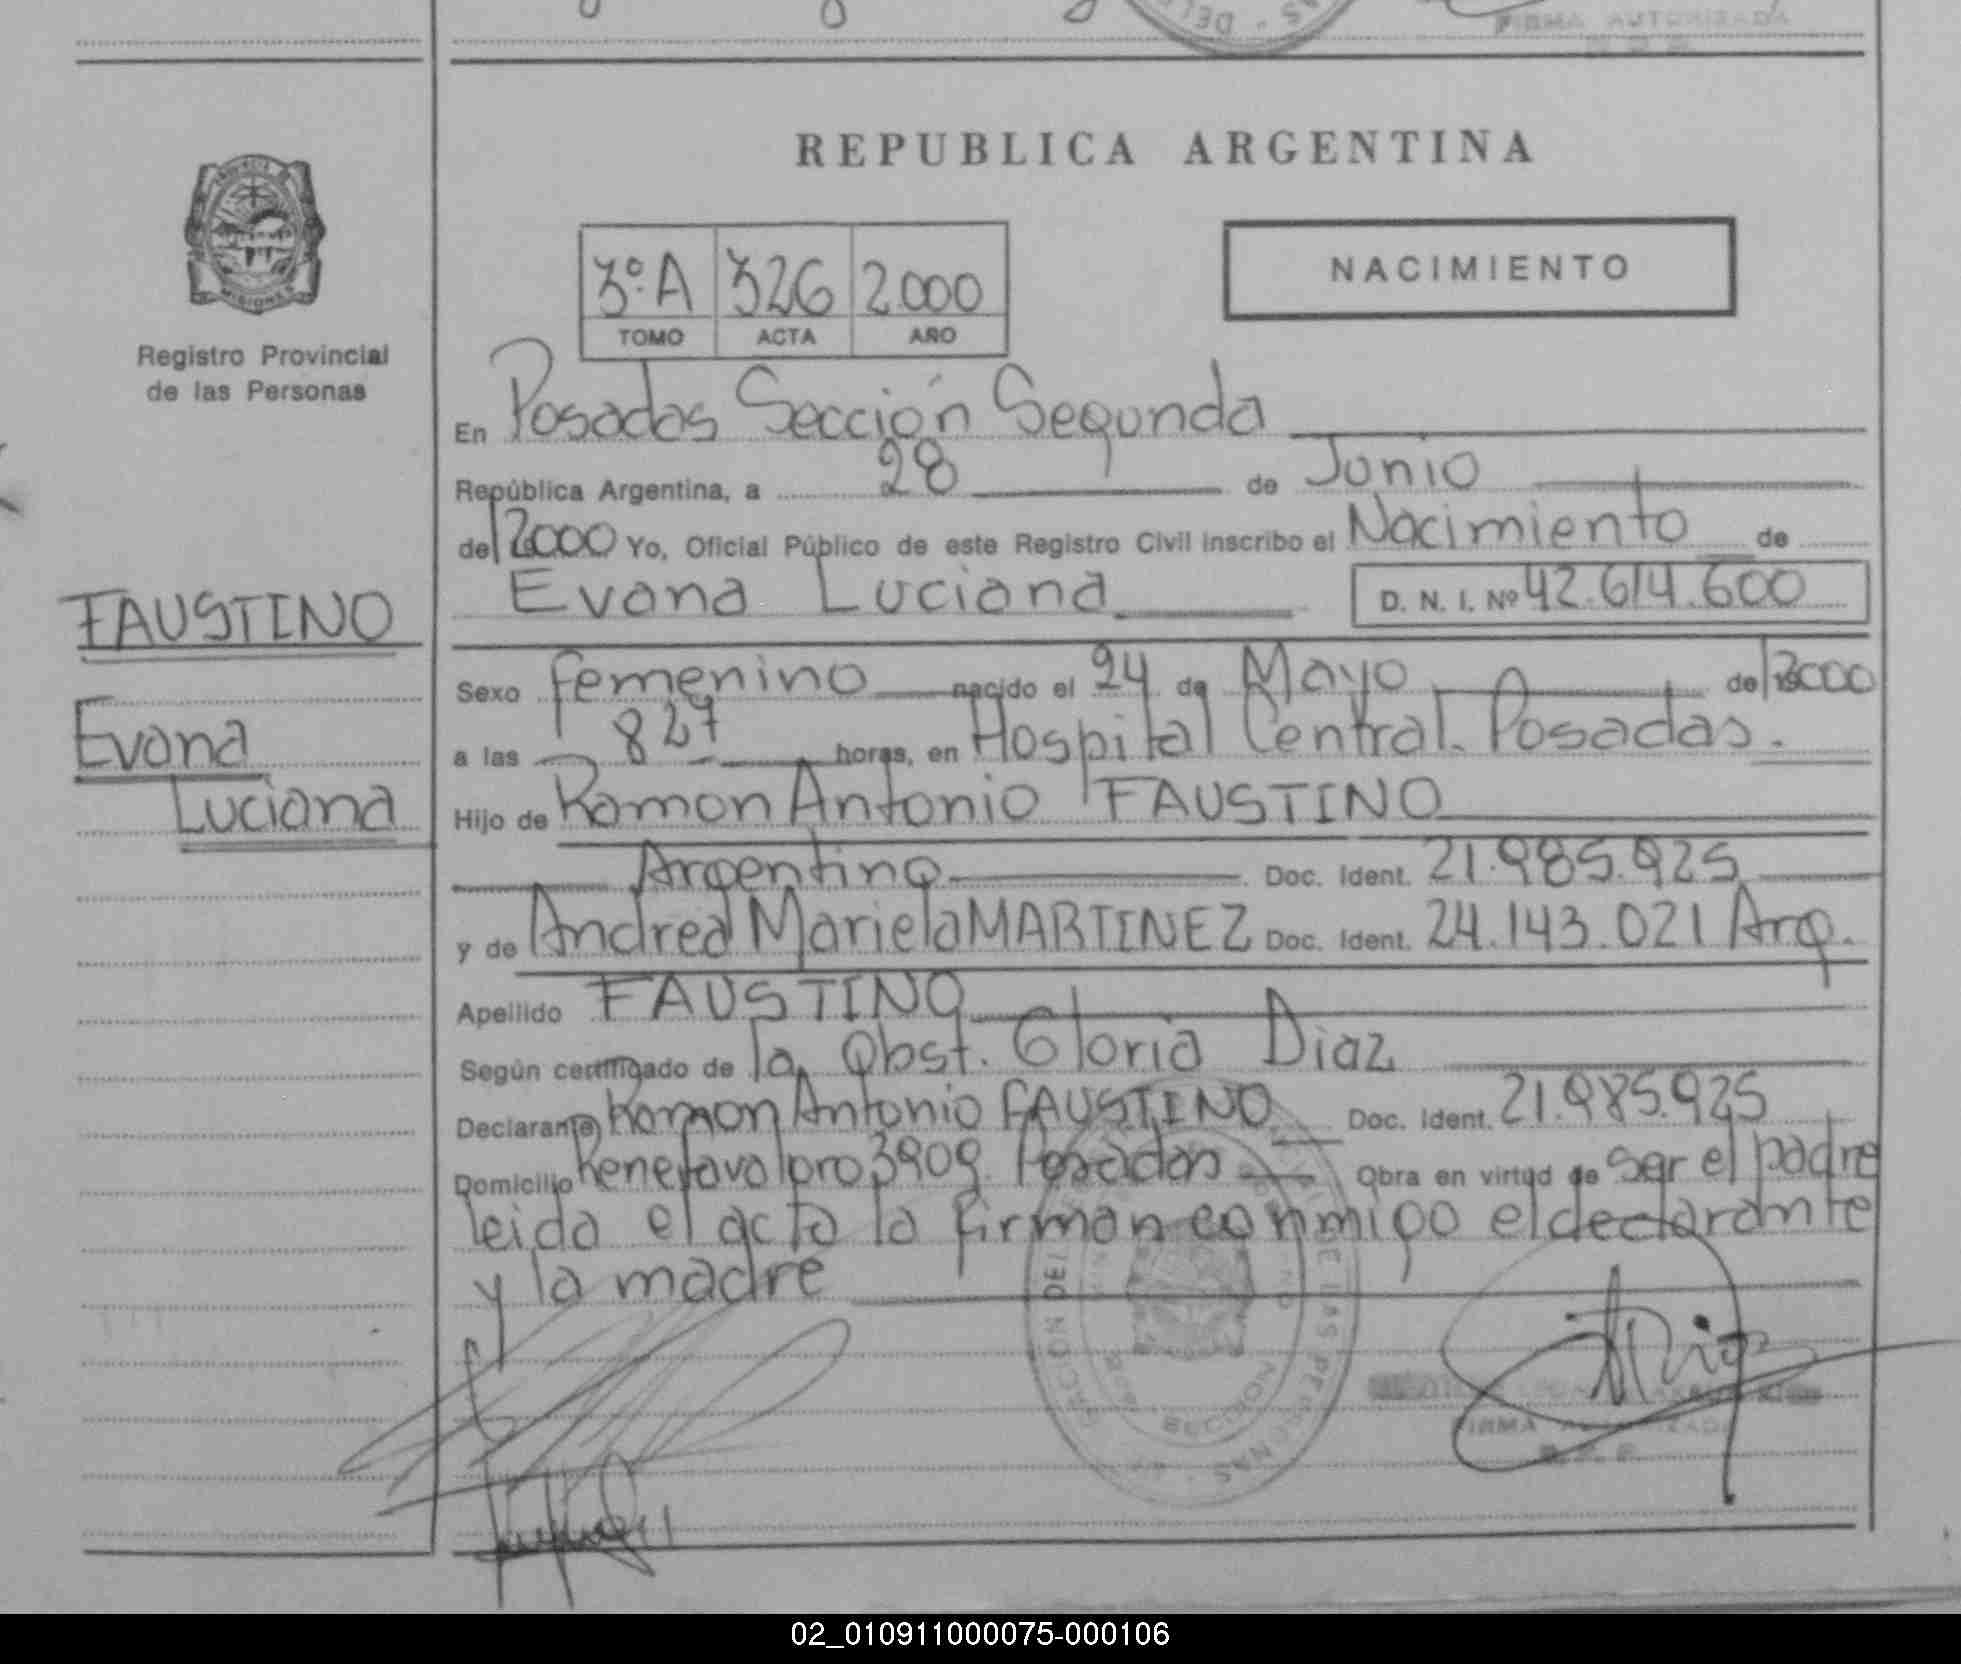 FIRMA AUTORIZADA
REPUBLICA ARGENTINA
MISIONES
Registro Provincial
de las Personas
3º A 326 2.000
TOMO ACTA AÑO
NACIMIENTO
En Posadas Sección Segunda
República Argentina, a 28 de Junio
del 2000 Yo, Oficial Público de este Registro Civil inscribo el Nacimiento de
Evana Luciana D. N. I. Nº 42.614.600
FAUSTINO
Evana
Luciana
Sexo femenino nacido el 24 de Mayo del 2000
a las 827 horas, en Hospital Central. Posadas.
Hijo de Ramon Antonio FAUSTINO
Argentino Doc. Ident. 21.985.925
y de Andrea Mariela MARTINEZ Doc. Ident. 24.143.021 Arg.
Apellido FAUSTINO
Según certificado de la Obst. Gloria Diaz
Declarante Ramon Antonio FAUSTINO Doc. Ident. 21.985.925
Domicilio 3909 Posadas Obra en virtud de ser el padre
leida el acta la firman conmigo el declarante
y la madre
FIRMA AUTORIZADA
02_010911000075-000106